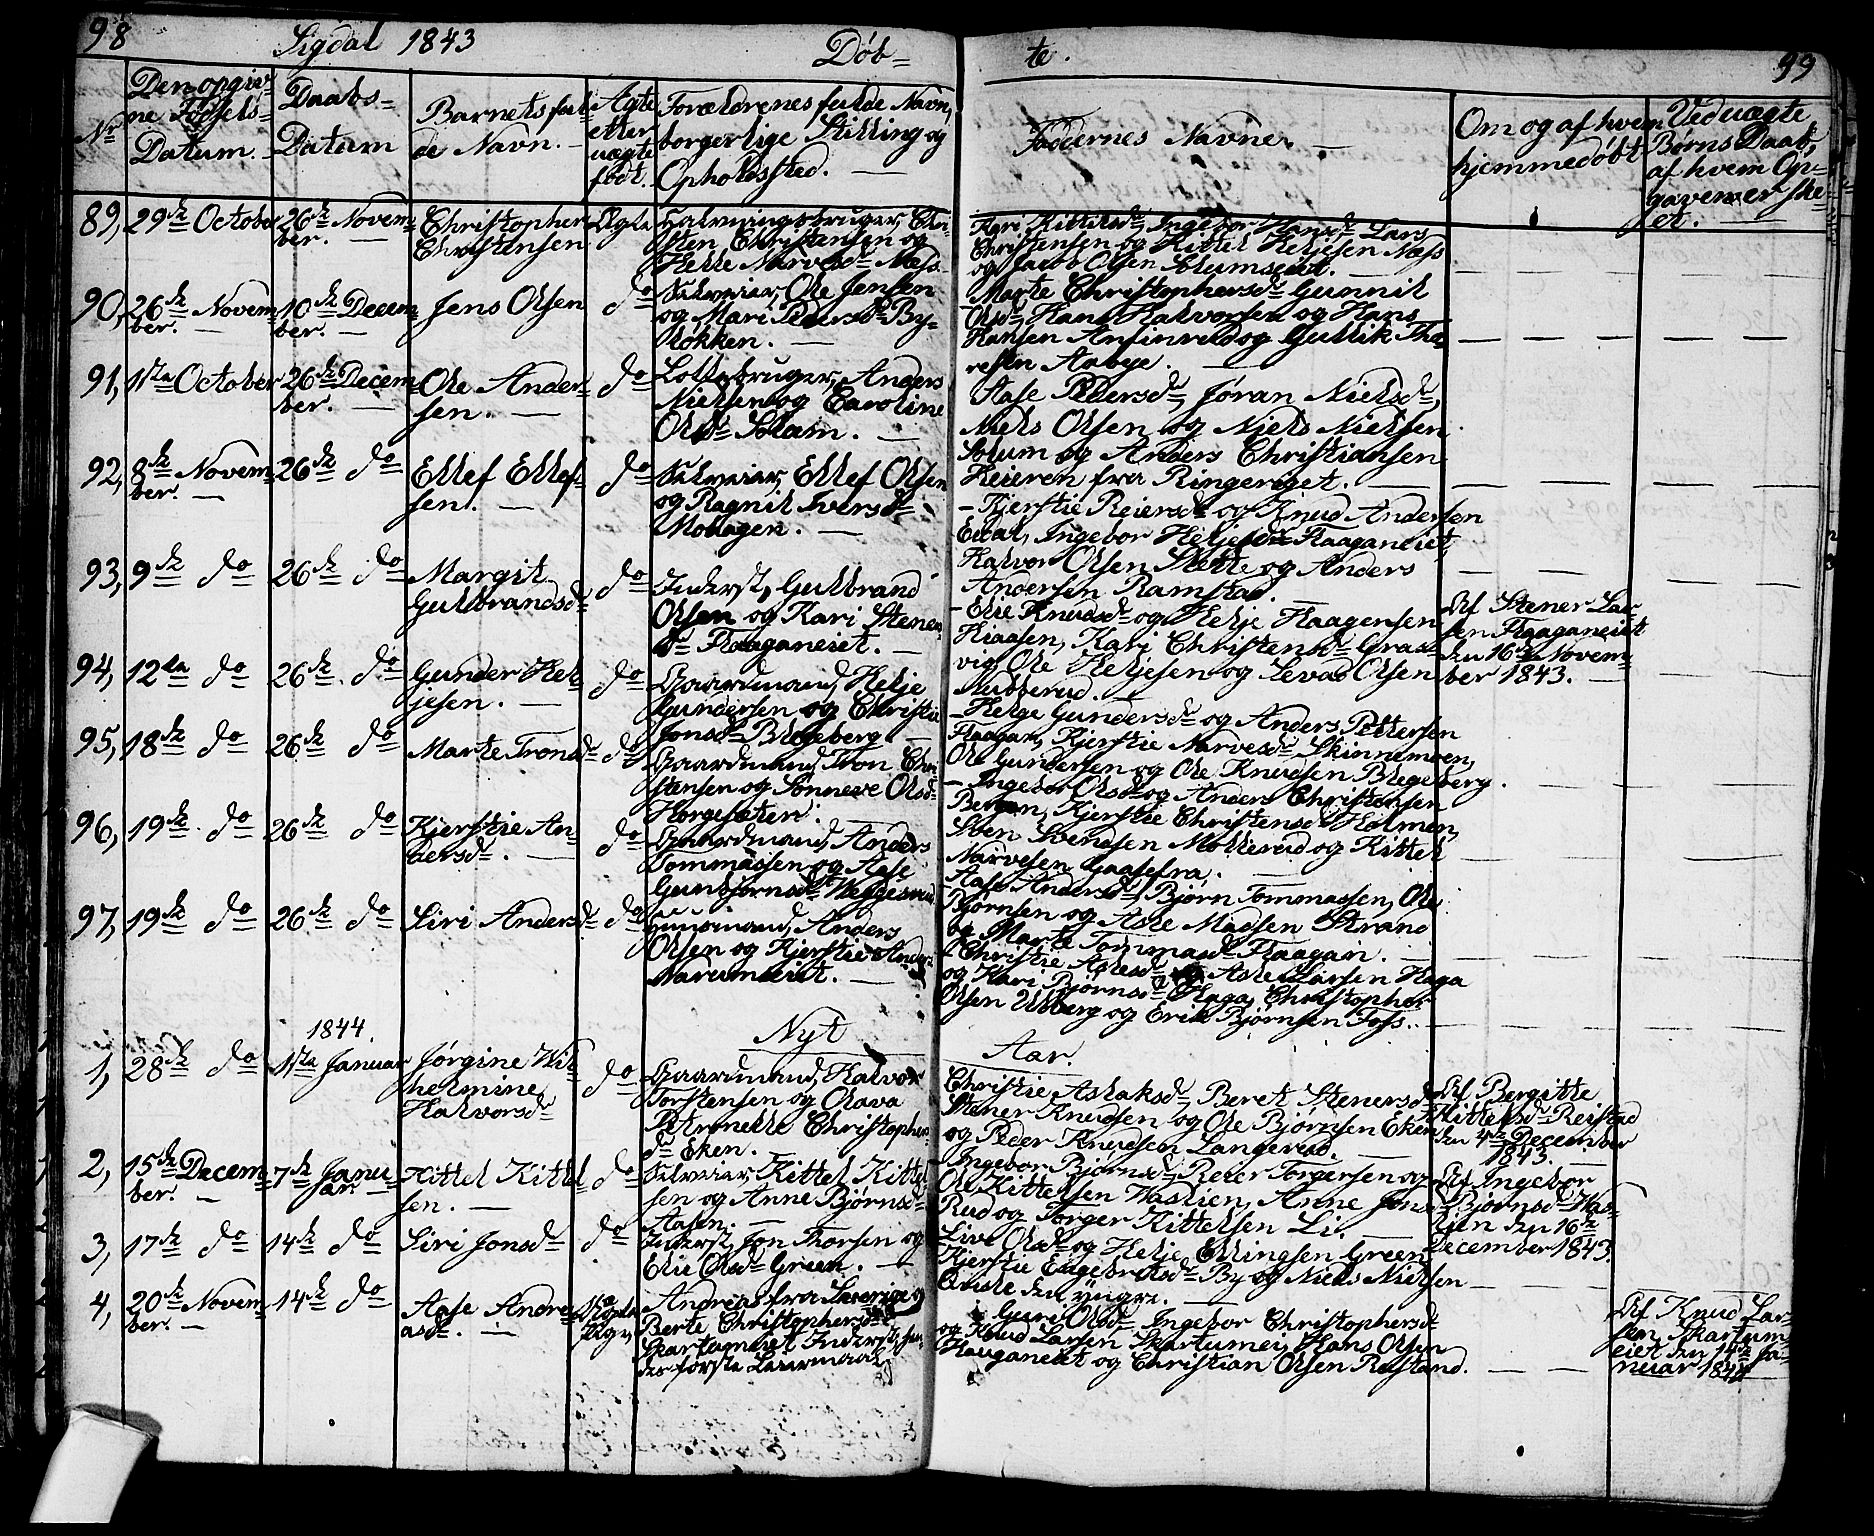 98 Sigdal 1843 Døb=
te. 99
Nr
Den opgiv-
ne Fødsels-
Datum.
Daabs-
Datum
Barnets ful-
de Navn.
Ægte
eller
uægte
født.
Forældrenes fulde Navn,
borgerlige Stilling og
Opholdssted.
Faddernes Navne.
Om og af hvem
hjemmedøbt
Ved uægte
Børns Daab,
af hvem Op-
gaven er ske-
et.
89, 29de October
26de Novem-
ber.
Christopher
Christensen
Ægte
Halvningsbruger, Chri-
sten Christensen og
Helle Narvesdr Næss.
Kari Kittilsdr, Ingebor Hansdr Lars
Christensen og Kittel Heljesen Næss
og Jacob Olsen Solumseiet.
90, 26de Novem-
ber.
10de Decem-
ber.
Jens Olsen
do
Selveier, Ole Jensen
og Mari Pedersdr By-
løkken.
Marte Christophersdr Gunnil
Olsdr, Hans Halvorsen og Hans
Hansen Anfinrud og Gullik Tho-
resen Aabye.
91, 11te October
26de Decem-
ber.
Ole Ander-
sen.
do
Lottebruger, Anders
Nielsen og Caroline
Olsdr Solum.
Aase Pedersdr, Jøran Nielsdr,
Niels Olsen og Niels Nielsen
Solum og Anders Christiansen
Heieren fra Ringeriget.
92, 8de Novem-
ber.
26de do
Ellef Ellef-
sen.
do
Selveier, Ellef Olsen
og Ragnil Iversdr
Mohagen.
- Kjerstie Reiersdr og Knud Andersen
Eidal, Ingebor Heljesdr Flaaganeiet,
Halvor Olsen Slette og Anders
Andersen Ramstad.
93, 9de do
26de do
Margit
Gulbrandsdr
do
Inderst, Gulbrand
Olsen og Kari Steners-
dr Flaaganeiet.
- Elie Knudsdr og Helje Haagensen
Hiaasen, Kari Christensdr Gras-
vig, Ole Heljesen og Levad Olsen
Nubberud.
Af Stener Lar-
sen Flaaganeiet
den 16de Novem-
ber 1843.
94, 12te do
26de do
Gunder Hel-
jesen.
do
Gaardmand, Helje
Gundersen og Christie
Jonsdr Blegeberg
- Helge Gundersdr og Anders Pettersen
Flaagan, Kjerstie Narvesdr Skinnemoen,
Ole Gundersen og Ole Knudsen Blegeberg.
95, 18de do
26de do
Marte Tronsdr
do
Gaardmand, Tron Chri-
stensen og Sønneve Olsdr
Horgesæten.
- Ingebor Olsdr og Anders Christensen
Bergan, Kjerstie Christensdr Holmen,
Sven Svendsen Mollerud og Kittel
Narvesen Gaasefra.
96, 19de do
26de do
Kjerstie An-
dersdr.
do
Gaardmand, Anders
Tommassen og Aase
Gunbjørnsdr
Aase Andersdr, Bjørn Tommassen, Ole
Bjørnsen og Aslе Madsen Strand
og Marte Tommasdr Flaagan.
97, 19de do
26de do
Siri Andersdr
do
Huusmand, Anders
Olsen og Kjerstie
Narumeiet.
- Christie Aslesdr Asle Larsen Haga
og Kari Bjørnsdr Haga, Christopher
Olsen Ulberg og Erik Bjørnsen Foss.
1844.
Nyt Aar.
1, 28de do
1ste Januar
Jørgine Wil-
helmine
Halvorsdr
do
Gaardmand, Halvor
Torstensen og Olava
Petronelle Christophers-
dr Eken.
Christie Aslaksdr Beret Stenersdr
Stener Knudsen og Ole Bjørnsen Eken
og Peder Knudsen Langerud.
Af Bergitte
Kittelsdr Reistad
den 4de December
1843.
2, 15de Decem-
ber.
7de Janu-
ar.
Kittel Kittel-
sen.
do
Selveier, Kittel Kittel-
sen og Anne Bjørnsdr
Aasen.
Ingebor Bjørnsdr Reier Torgersen og
Ole Kittelsen Waslien, Anne Jonsdr
Rud og Torger Kittelsen Li.
Af Ingebor
Bjørnsdr Was-
lien den 16de
December 1843.
3, 17de do
14de do
Siri Jonsdr
do
Inderst, Jon Thorsen og
Elie Olsdr Green.
Live Olsdr og Helje Ellingsen Green
Kjerstie Engebretsdr By og Niels Nielsen
Qvisle den yngre.
4, 20de Novem-
ber.
14de do
Aase Andre-
asdr.
Andreas fra Sverrige og
Berte Christophersdr
Skartumeiet Inderst,
des første Leiermaal
Guri Olsdr Ingebor Christophersdr
og Knud Larsen Skartumei, Hans Olsen
Hauganeiet og Christian Olsen Redstand.
Af Knud Lar-
sen, Skartum-
eiet den 14de Ja-
nuar 1844